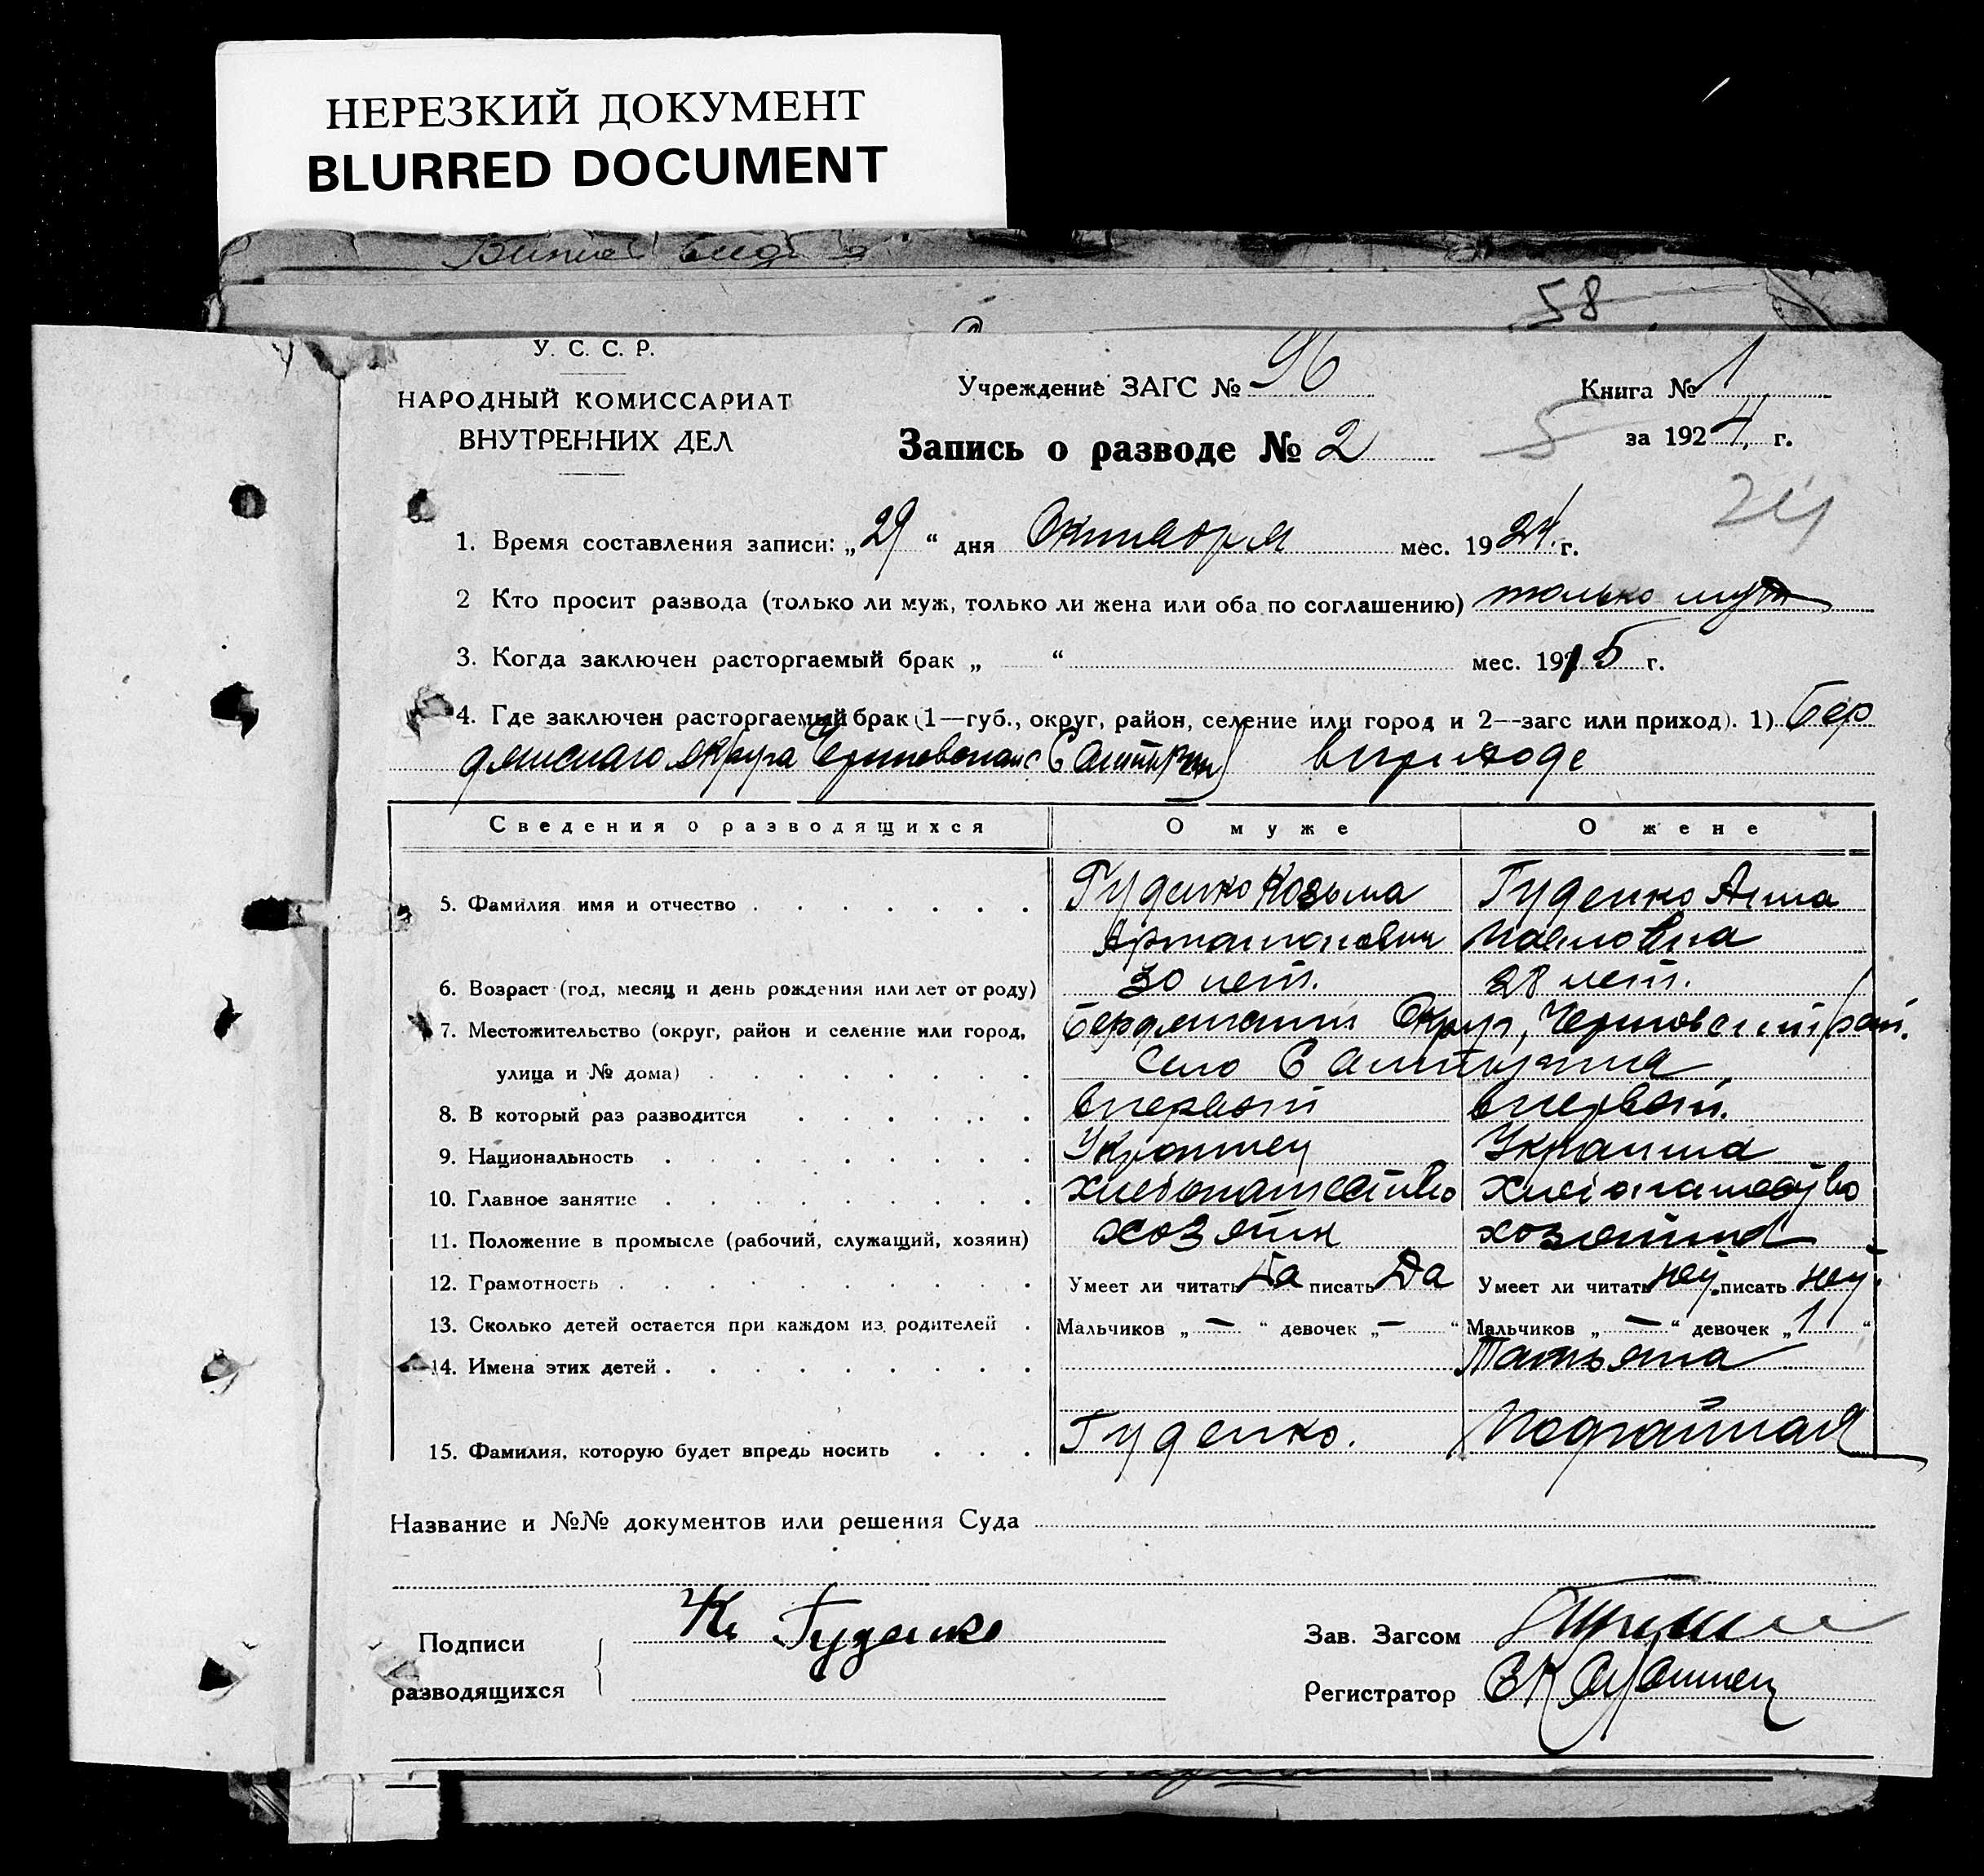 НЕРЕЗКИЙ ДОКУМЕНТ
BLURRED DOCUMENT
58
У. С. С. Р.
НАРОДНЫЙ КОМИССАРИАТ
ВНУТРЕННИХ ДЕЛ
Учреждение ЗАГС № 96
Книга № 1
за 1924 г.
Запись о разводе № 2
5
24
1. Время составления записи: „29“ дня Октября мес. 1924 г.
2 Кто просит развода (только ли муж, только ли жена или оба по соглашению) только муж
3. Когда заключен расторгаемый брак „ “ мес. 1915 г.
4. Где заключен расторгаемый брак (1—губ., округ, район, селение или город и 2—загс или приход). 1) Бер
дянскаго округа в приходе
Сведения о разводящихся О муже О жене
5. Фамилия имя и отчество Гуденко Козьма Гуденко Анна
Артамонович Павловна
6. Возраст (год, месяц и день рождения или лет от роду) 30 лет. 28 лет.
7. Местожительство (округ, район и селение или город, Бердянский Округ, Черновский рай.
улица и № дома) Село
8. В который раз разводится впервой впервой.
9. Национальность Украинец Украинка
10. Главное занятие хлебопашество хлебопашество
11. Положение в промысле (рабочий, служащий, хозяин) хозяин хозяйка
12. Грамотность Умеет ли читать Да писать Да Умеет ли читать нет. писать нет.
13. Сколько детей остается при каждом из родителей Мальчиков „ — “ девочек „ — “ Мальчиков „ — “ девочек „ 1 “
14. Имена этих детей Татьяна
15. Фамилия, которую будет впредь носить Гуденко. Подгайная
Название и №№ документов или решения Суда
Подписи К. Гуденко Зав. Загсом
разводящихся Регистратор